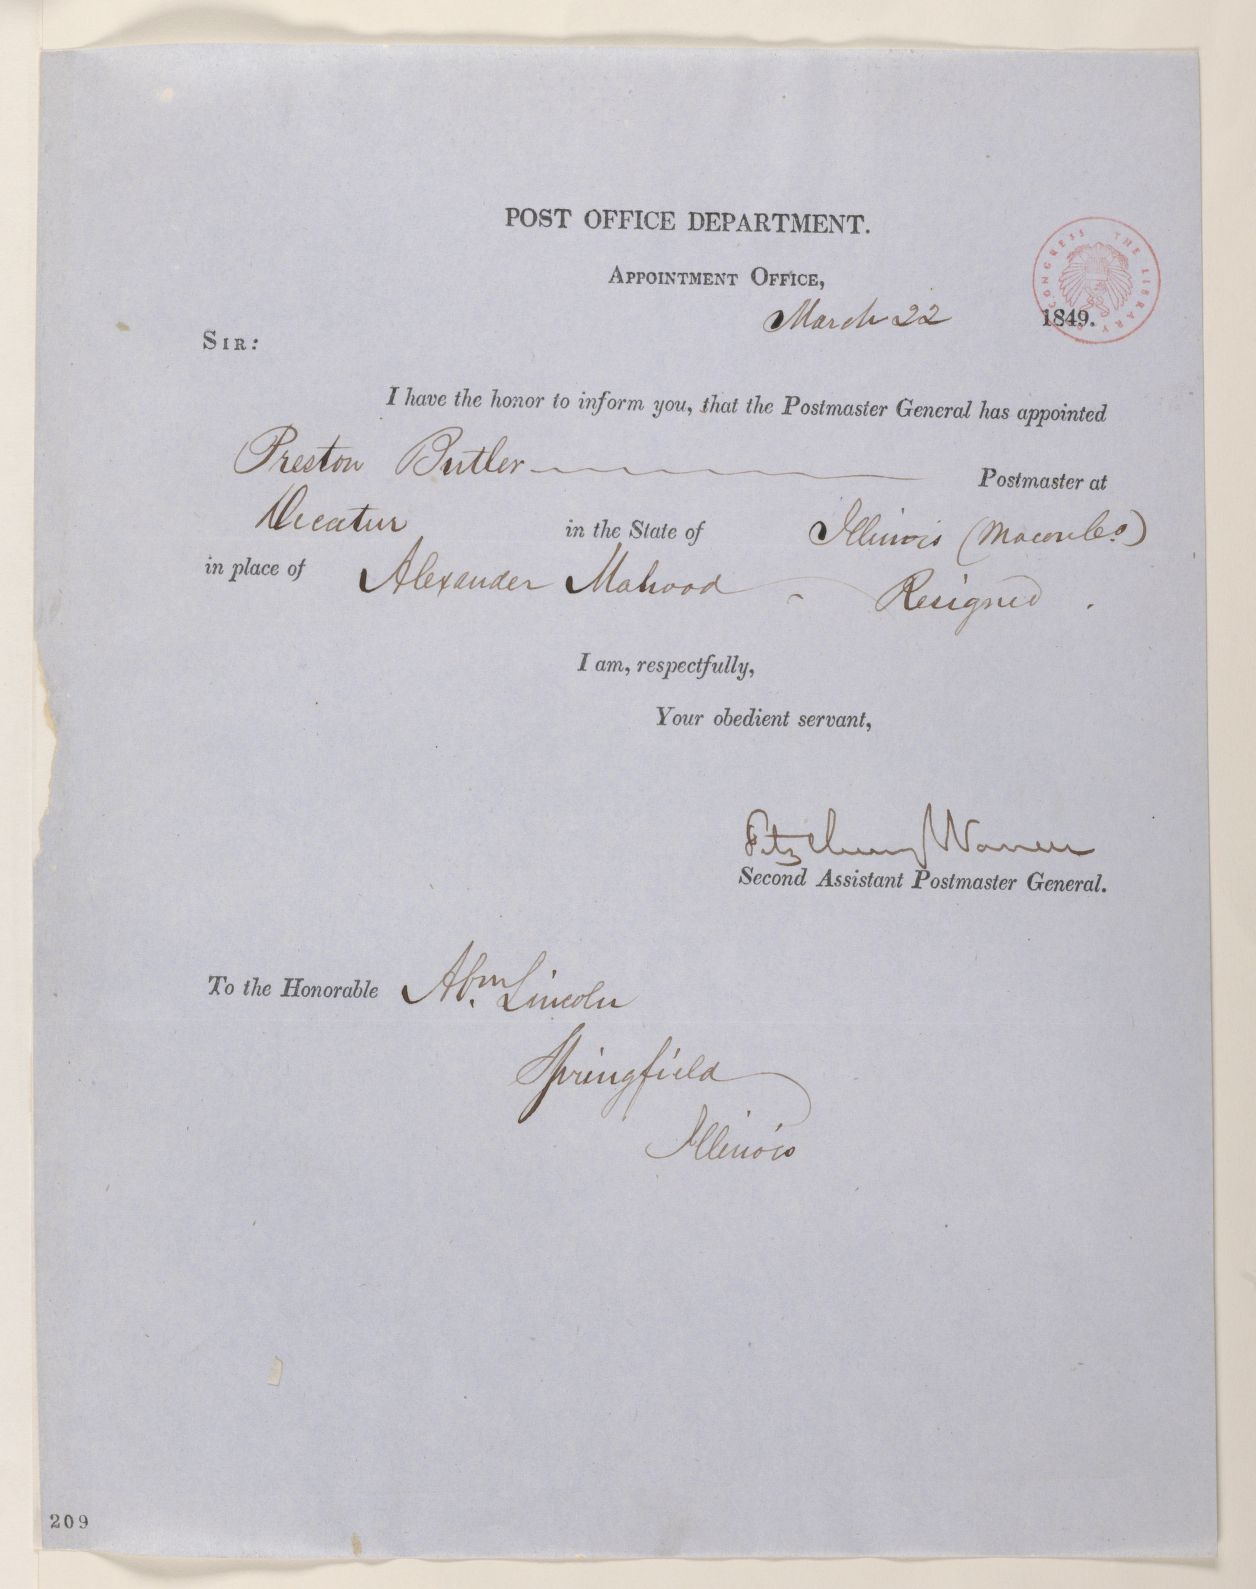 POST OFFICE DEPARTMENT.
APPOINTMENT OFFICE,
March 22 1849.
THE LIBRARY OF CONGRESS
SIR:
I have the honor to inform you, that the Postmaster General has appointed
Preston Butler Postmaster at
Decatur in the State of Illinois (Macon Co.)
in place of Alexander Mahood - Resigned.
I am, respectfully,
Your obedient servant,
Fitz Henry Warren
Second Assistant Postmaster General.
To the Honorable Abm. Lincoln
Springfield
Illinois
209